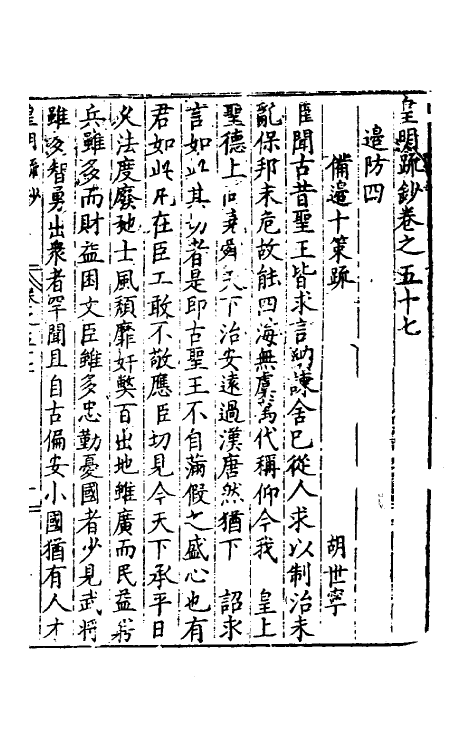 皇明疏鈔卷之五十七
邉防四
備邉十策疏 胡世寧
臣聞古昔聖王皆求言納諫舍己從人求以制治未
亂保邦未危故能四海無虞萬代稱仰今我 皇上
聖德上同堯舜天下治安遠過漢唐然猶下 詔求
言如此其切者是即古聖王不自滿假之盛心也有
君如此凡在臣工敢不敬應臣切見今天下承平日
久法度廢弛士風頹靡奸弊百出地雖廣而民益窮
兵雖多而財益困文臣雖多忠勤憂國者少見武將
雖多智勇出衆者罕聞且自古偏安小國猶有人才
皇明疏鈔